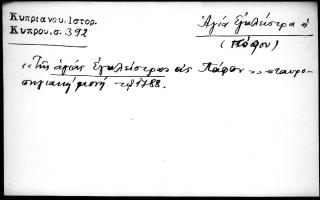 Κυπριανου. Ιστορ.
Κυπρου, σ. 392
Ἁγία Ἐγκλείστρα ἡ
(Πάφου)
«Τῆς ἁγίας Ἐγκλείστρας εἰς Πάφον» σταυρο-
πηγιακὴ μονὴ τῷ 1788.